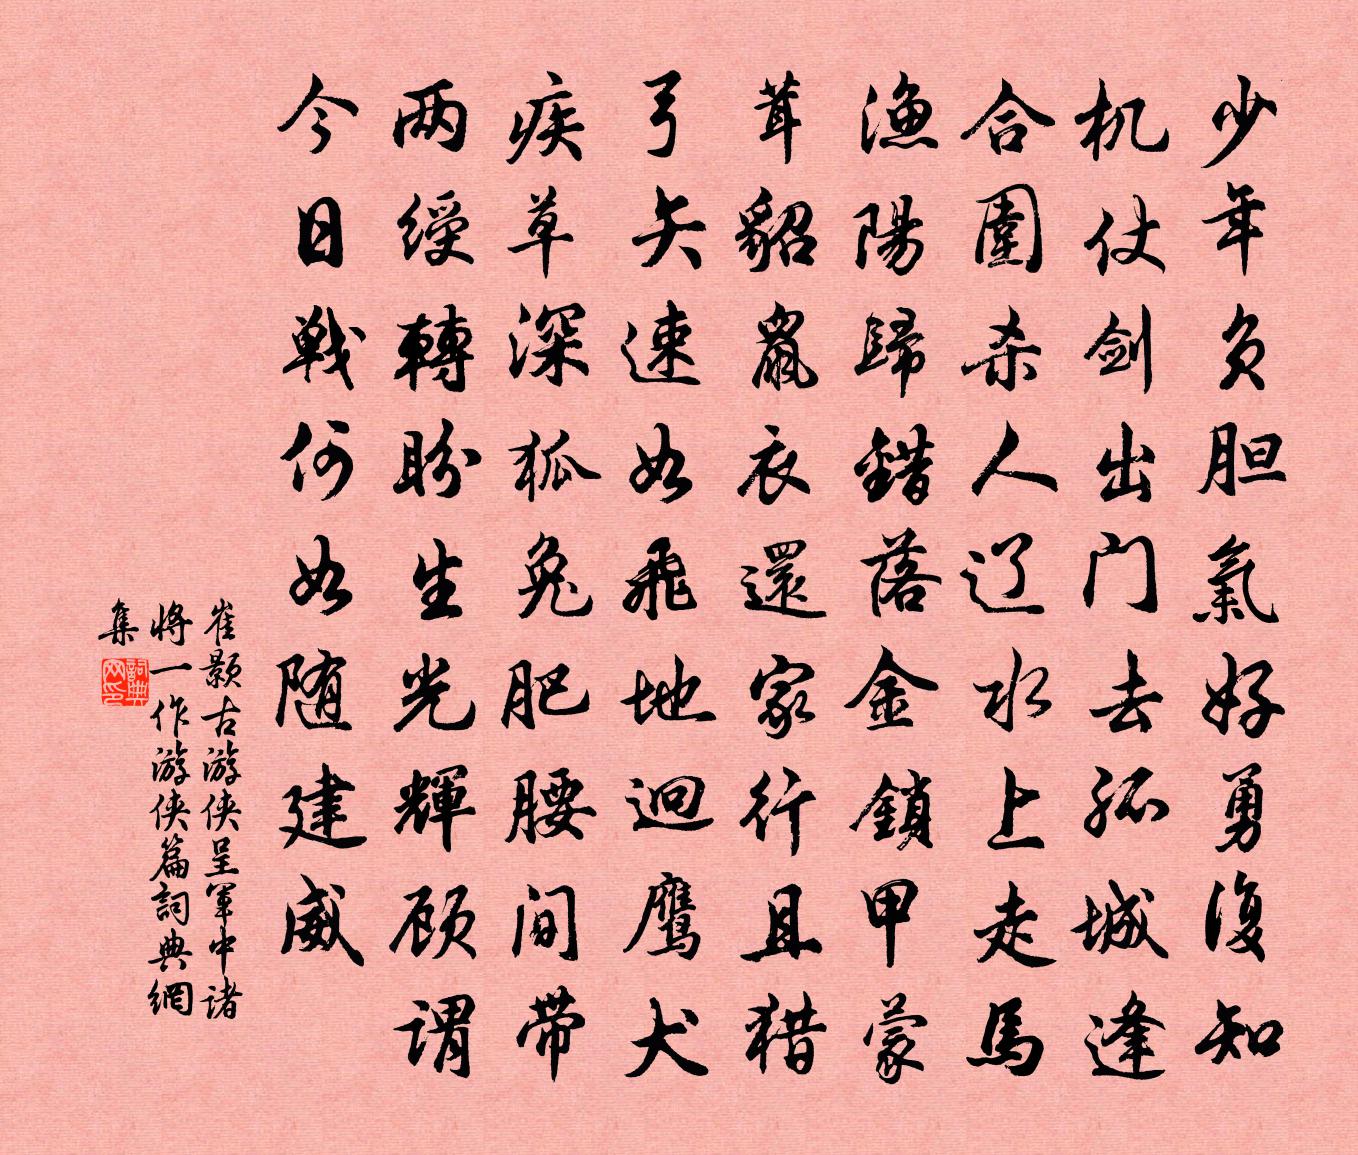 少年负胆氣好勇復知
机仗剑出门去孤城逢
合圍杀人辽水上走馬
渔陽歸錯落金鎖甲蒙
茸貂鼠衣還家行且猎
弓矢速如飛地迥鹰犬
疾草深狐兔肥腰间带
两綬轉盼生光輝顾谓
今日戦何如随建威
崔颢古游侠呈軍中诸
将一作游侠篇詞典網
集
詞典网印